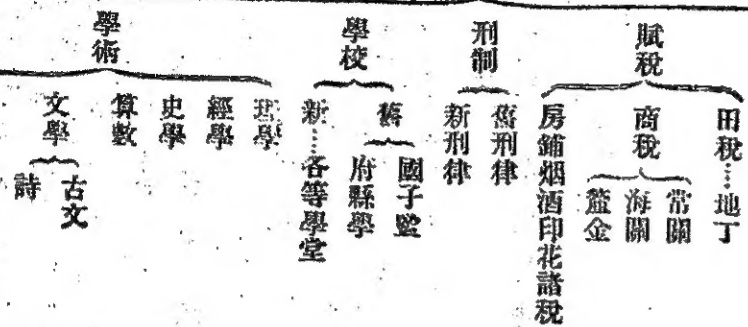 賦稅
田稅……地丁
商稅
常關
海關
釐金
房鋪烟酒印花諸稅
刑制
舊刑律
新刑律
學校
舊
國子監
府縣學
新……各等學堂
學術
經學
史學
算數
文學
古文
詩